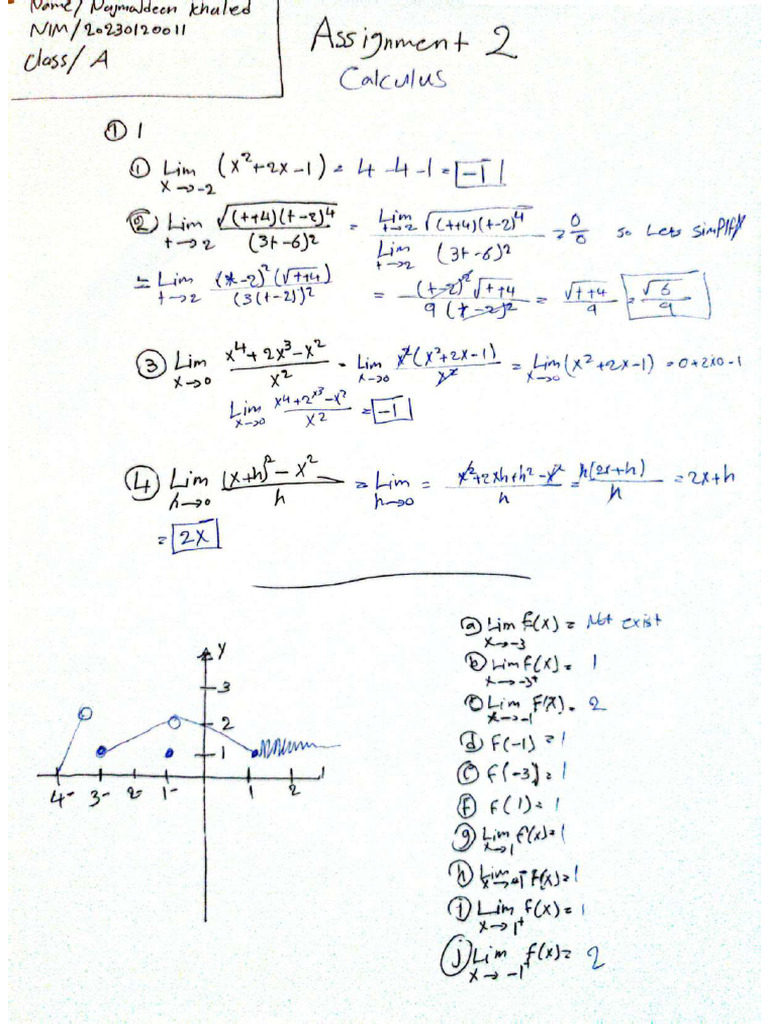 Name/ Najmaldeen Khaled
NIM/20230120011
Class/ A
Assignment 2
Calculus
① 1
① Lim x→-2 (x²+2x-1) = 4-4-1 = -1
② Lim t→2 √((t+4)(t-2)⁴) / (3t-6)² = Lim t→2 √((t+4)(t-2)⁴) / Lim t→2 (3t-6)² = 0/0 so Lets simplify
= Lim t→2 (t-2)²(√t+4) / (3(t-2))² = (t-2)²√t+4 / 9(t-2)² = √t+4 / 9 = √6 / 9
③ Lim x→0 x⁴+2x³-x² / x² = Lim x→0 x²(x²+2x-1) / x² = Lim x→0 (x²+2x-1) = 0+2x0-1
Lim x→0 x⁴+2x³-x² / x² = -1
④ Lim h→0 (x+h)²-x² / h = Lim h→0 = x²+2xh+h²-x² / h = h(2x+h) / h = 2x+h
= 2x
ⓐ Lim x→-3 f(x) = Not exist
ⓑ Lim x→-3⁺ f(x) = 1
ⓒ Lim x→-1 F(x) = 2
ⓓ F(-1) = 1
ⓔ f(-3) = 1
ⓕ f(1) = 1
ⓖ Lim x→1 f(x) = 1
ⓗ Lim f(x) = 1
ⓘ Lim x→1⁺ f(x) = 1
ⓙ Lim x→-1⁺ f(x) = 2
y
3
2
1
4- 3- 2- 1- 1 2